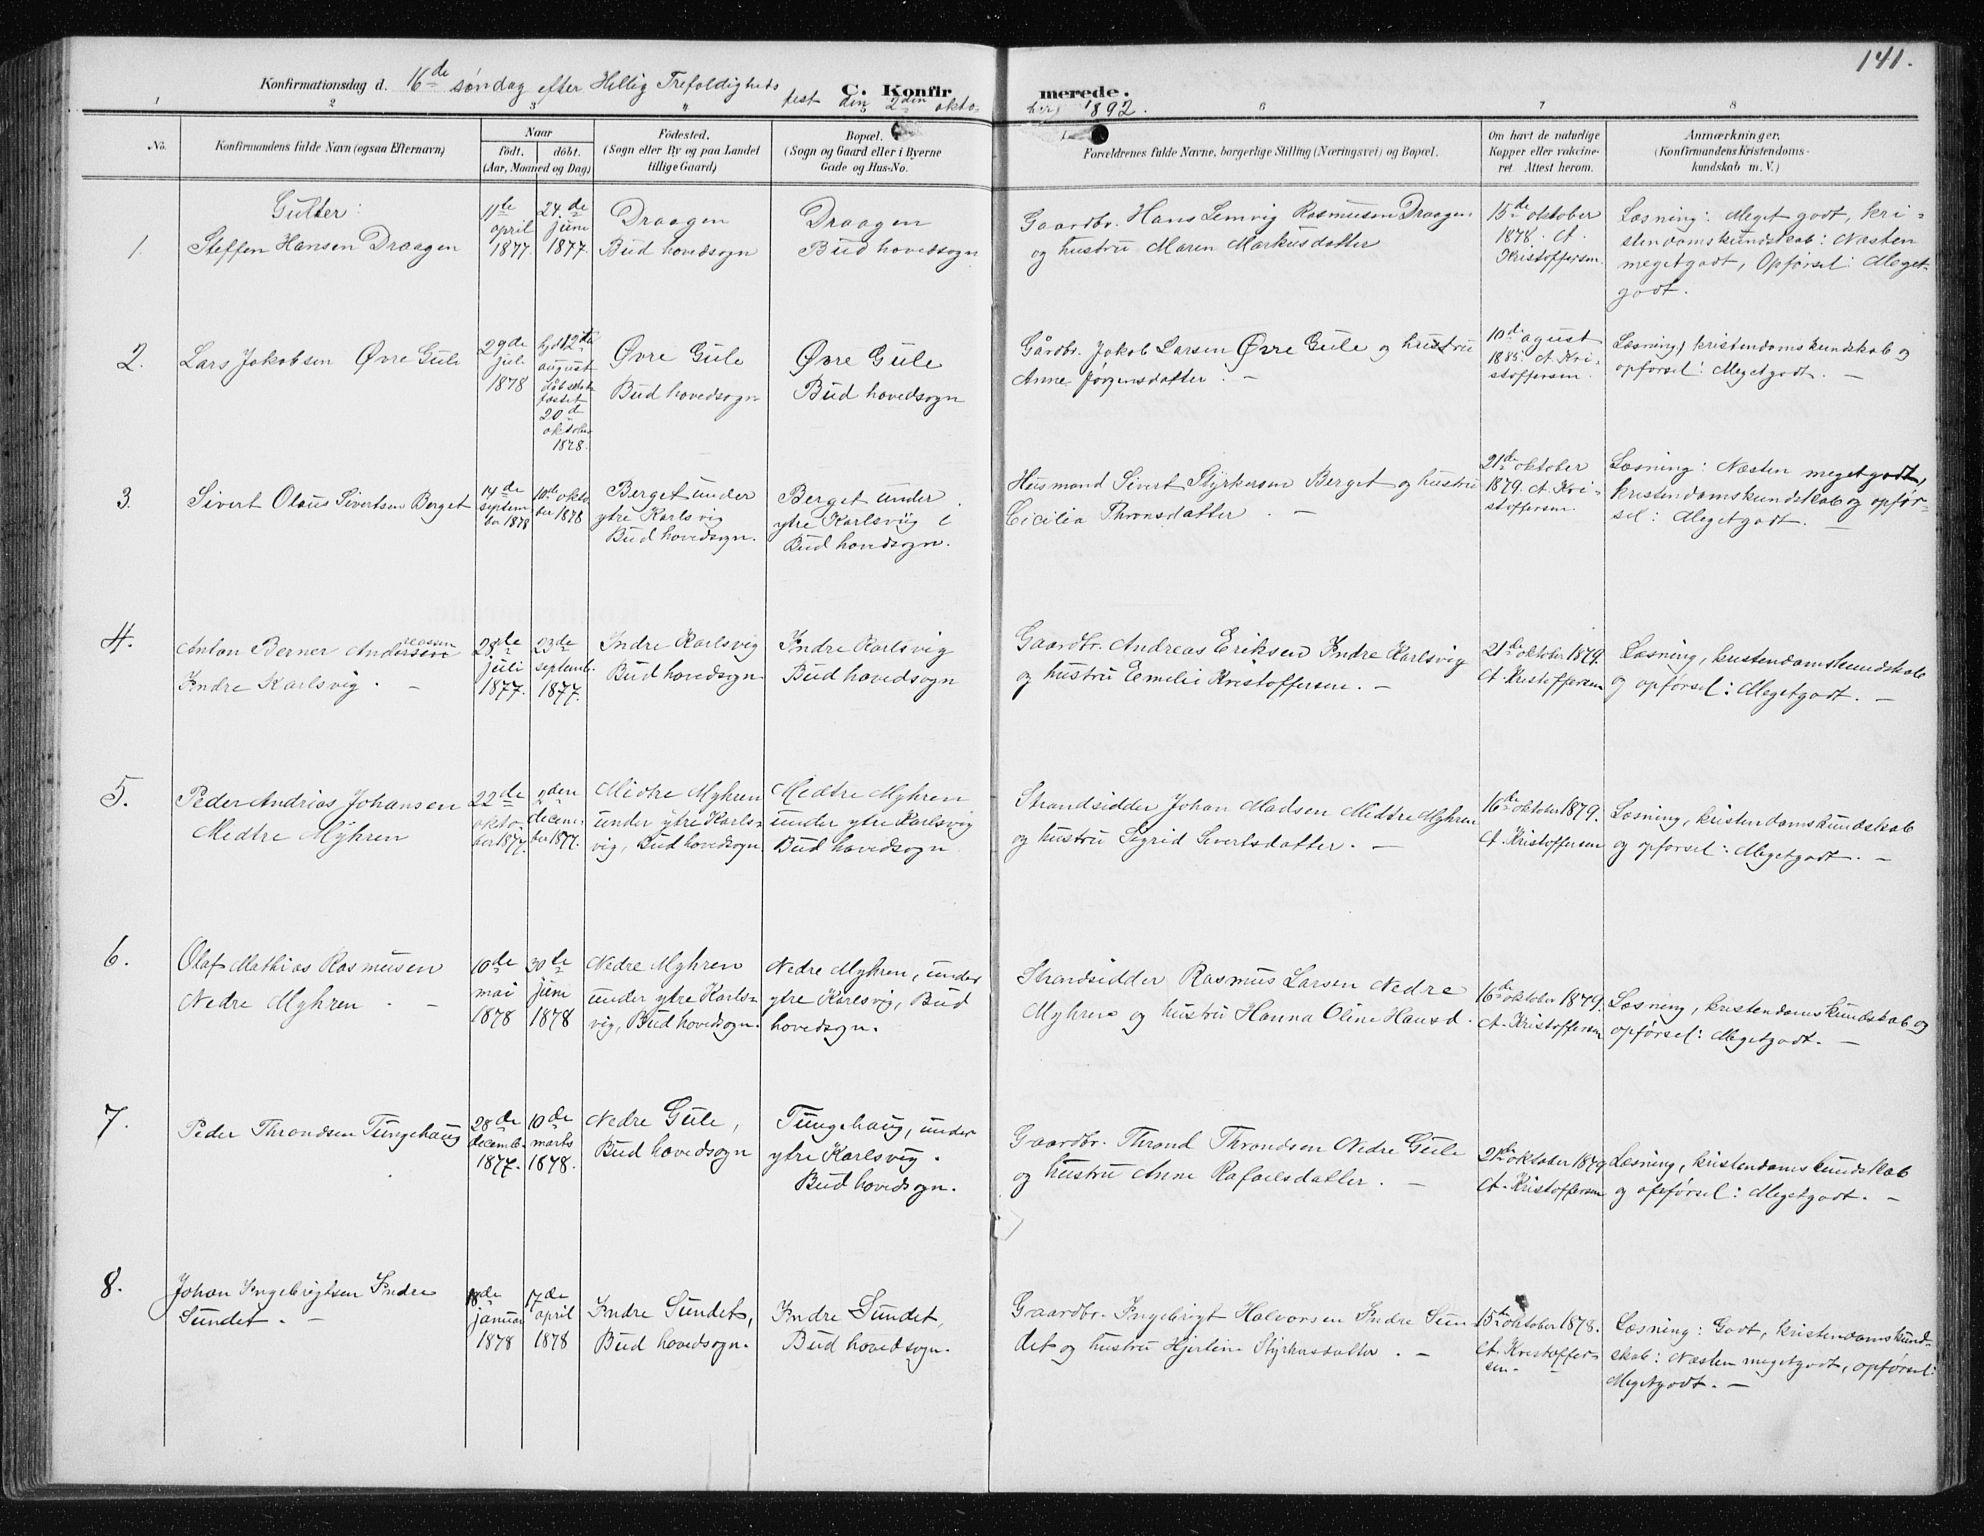 141.
Konfirmationsdag d. 16de søndag efter Hellig Trefoldigheds
fest den 2den okto-
ber 1892.
C. Konfirmerede.
1 2 3 4 6 7 8
No.
Konfirmandens fulde Navn (ogsaa Efternavn)
Naar
født. døbt.
(Aar, Maaned og Dag)
Fødested.
(Sogn eller By og paa Landet
tillige Gaard)
Bopæl.
(Sogn og Gaard eller i Byerne
Gade og Hus-No.
Forældrenes fulde Navne, borgerlige Stilling (Næringsvei) og Bopæl.
Om havt de naturlige
Kopper eller vakcine-
ret. Attest herom.
Anmærkninger.
(Konfirmandens Kristendoms-
kundskab m. V.)
Gutter:
1.
Steffen Hansen Draagen
11te
april
1877
24.de
juni
1877.
Draagen
Bud hovedsogn
Draagen
Bud hovedsogn
Gaardbr. Hans Lemvig Rasmusen Draagen
og hustru Maren Markusdatter
15de oktober
1878. A.
Kristoffersen.
Læsning: Meget godt, kri-
stendomskundskab: Næsten
megetgodt, Opførsel: Meget-
godt.
2.
Lars Jakobsen Øvre Gule
29de
juli
1878
hjdt 12te
august
dåb stad-
fæstet
20de
oktober
1878.
Øvre Gule
Bud hovedsogn
Øvre Gule
Bud hovedsogn
Gårdbr. Jakob Larsen Øvre Gule og hustru
Anne Jørgensdatter. -
10de agust
1885. A. Kri-
stoffersen.
Læsning, kristendomskundskab og
opførsel: Megetgodt. -
3.
Sivert Olaus Sivertsen Berget
14de
septem-
ber 1878
10de okto
ber 1878
Berget under
ytre Karlsvig
Bud hovedsogn.
Berget under
ytre Karlsviig i
Bud hovedsogn.
Husmand Sivert Styrkersen Berget og hustru
Cicilia Thronsdatter. -
21de oktober
1879. A. Kri-
stoffersen.
Læsning: Næsten megetgodt,
kristendomskundskab og opfør-
sel: Megetgodt. -
4.
Anton Berner Andersen reassen
Indre Karlsvig. -
28de
juli
1877.
23de
septemb.
1877.
Indre Karlsvig
Bud hovedsogn.
Indre Karlsvig
Bud hovedsogn
Gaardbr. Andreas Eriksen Indre Karlsvig
og hustru Emelie Kristoffersen. -
21de oktober 1879.
A. Kristoffersen
Læsning, kristendomskundskab
og opførsel: Megetgodt. -
5.
Peder Andrias Johansen
Medtre Myhren
22de
okto-
ber 1877.
2den
decem-
ber 1877.
Midtre Myhren
under ytre Karls-
vig, Bud hovedsogn
Medtre Myhren
under ytre Karlsvig
Bud hovedsogn
Strandsidder Johan Madsen Medtre Myhren
og hustru Sigrid Sivertsdatter. -
16de oktober 1879.
A. Kristoffersen
Læsning, kristendomskundskab
og opførsel: Megetgodt. -
6.
Olaf Mathias Rasmusen
Nedre Myhren. -
10de
mai
1878
30te
juni
1878
Nedre Myhren
under ytre Karls-
vig, Bud hovedsogn.
Nedre Myhren, under
ytre Karlsvig, Bud
hovedsogn.
Strandsidder Rasmus Larsen Nedre
Myhren og hustru Hanna Oline Hansd.
16de oktober 1879.
A. Kristoffersen
Læsning, kristendomskundskab og
opførsel: Megetgodt. -
7.
Peder Throndsen Tungehaug
28de
decemb.
1877.
10de
marts
1878.
Nedre Gule,
Bud hovedsogn
Tungehaug, under
ytre Karlsvig.
Bud hovedsogn.
Gaardbr. Thrond Throndsen Nedre Gule
og hustru Anne Rafaelsdatter. -
21de oktober 1879
A. Kristoffersen
Læsning, kristendomskundskab
og opførsel: Megetgodt. -
8.
Johan Ingebrigtsen Indre
Sundet. -
18de
januar
1878
17de
april
1878
Indre Sundet,
Bud hovedsogn.
Indre Sundet,
Bud hovedsogn.
Gaardbr. Ingebrigt Halvorsen Indre Sun-
det og hustru Hjerline Styrkersdatter. -
15de oktober 1878.
A. Kristoffer-
sen. -
Læsning: Godt, kristendomskund-
skab: Næsten megetgodt, opførsel:
Megetgodt. -